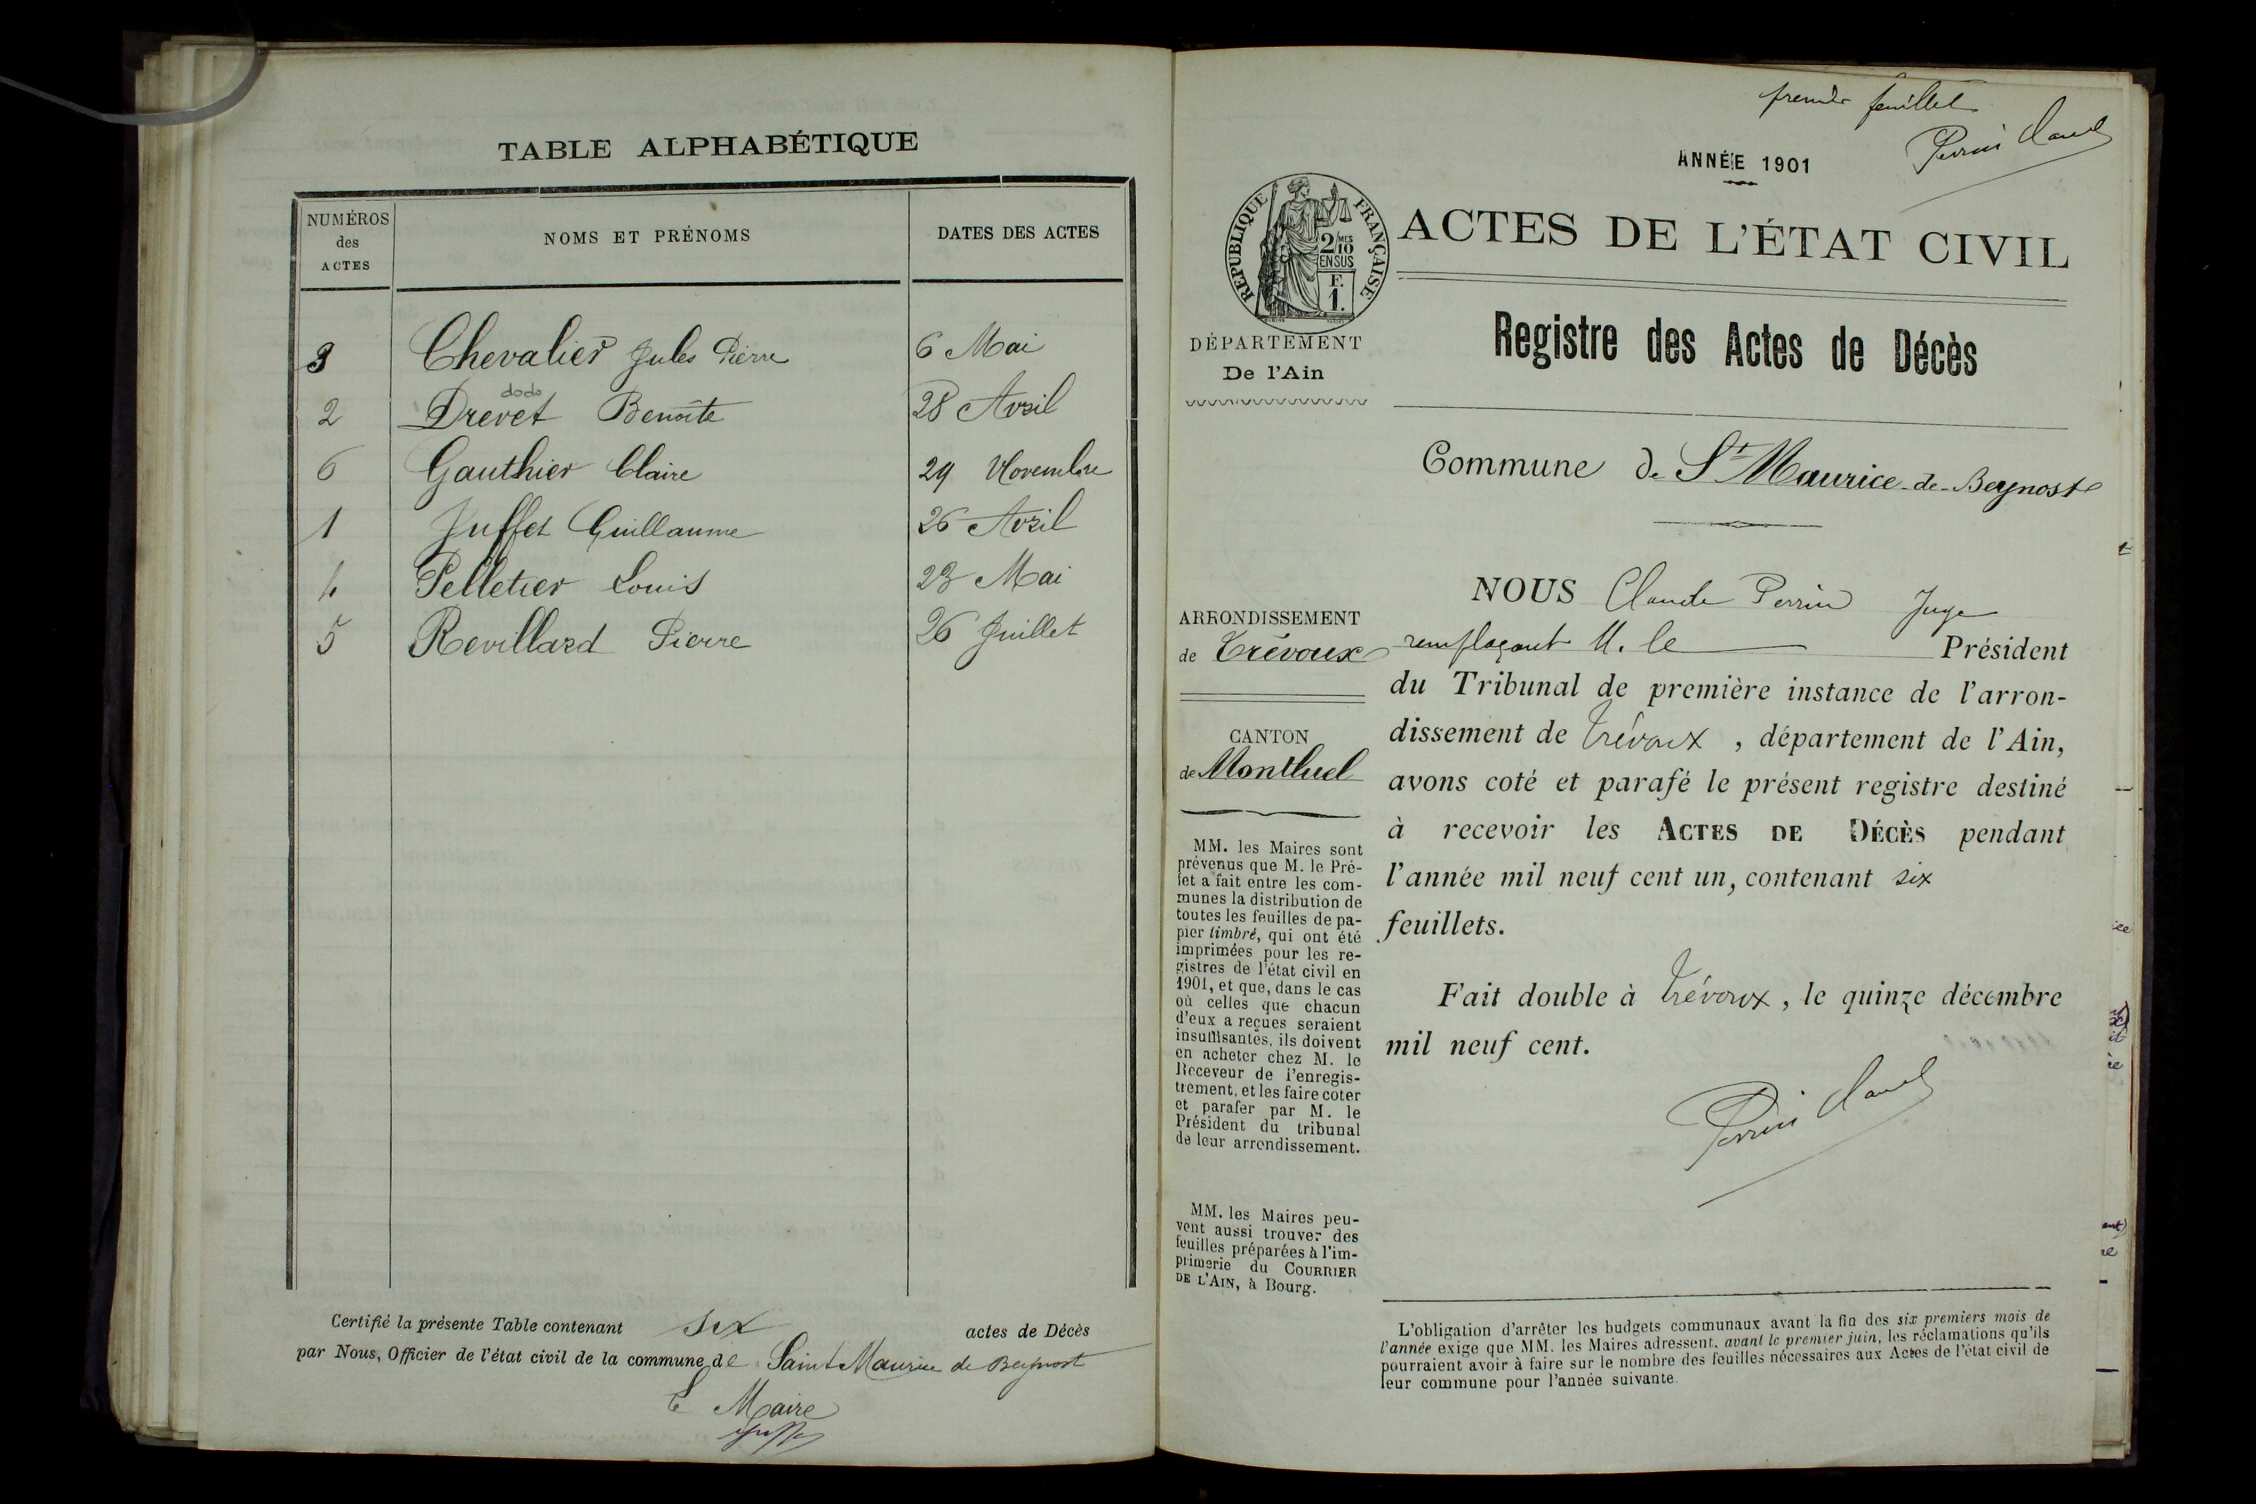 TABLE ALPHABÉTIQUE
NUMÉROS
des
ACTES
NOMS ET PRÉNOMS
DATES DES ACTES
3 Chevalier Jules Pierre 6 Mai
2 Drevet Benoîte 28 Avril
6 Gauthier Claire 29 Novembre
1 Juffet Guillaume 26 Avril
4 Pelletier Louis 23 Mai
5 Revillard Pierre 26 Juillet
Certifié la présente Table contenant six actes de Décès
par Nous, Officier de l'état civil de la commune de Saint Maurice de Beynost
Le Maire
premier feuillet
Perrin Claude
ANNÉE 1901
RÉPUBLIQUE FRANÇAISE
2/10 MES
EN SUS
F.
1.
ACTES DE L'ÉTAT CIVIL
DÉPARTEMENT
De l'Ain
Registre des Actes de Décès
Commune de St Maurice-de-Beynost
ARRONDISSEMENT
de Trévoux
CANTON
de Montluel
MM. les Maires sont
prévenus que M. le Pré-
fet a fait entre les com-
munes la distribution de
toutes les feuilles de pa-
pier timbré, qui ont été
imprimées pour les re-
gistres de l'état civil en
1901, et que, dans le cas
où celles que chacun
d'eux a reçues seraient
insuffisantes, ils doivent
en acheter chez M. le
Receveur de l'enregis-
trement, et les faire coter
et parafer par M. le
Président du tribunal
de leur arrondissement.
MM. les Maires peu-
vent aussi trouver des
feuilles préparées à l'im-
primerie du COURRIER
DE L'AIN, à Bourg.
NOUS Claude Perrin Juge
remplaçant M. le Président
du Tribunal de première instance de l'arron-
dissement de Trévoux, département de l'Ain,
avons coté et parafé le présent registre destiné
à recevoir les ACTES DE DÉCÈS pendant
l'année mil neuf cent un, contenant six
feuillets.
Fait double à Trévoux, le quinze décembre
mil neuf cent.
Perrin Claude
L'obligation d'arrêter les budgets communaux avant la fin des six premiers mois de
l'année exige que MM. les Maires adressent, avant le premier juin, les réclamations qu'ils
pourraient avoir à faire sur le nombre des feuilles nécessaires aux Actes de l'état civil de
leur commune pour l'année suivante.